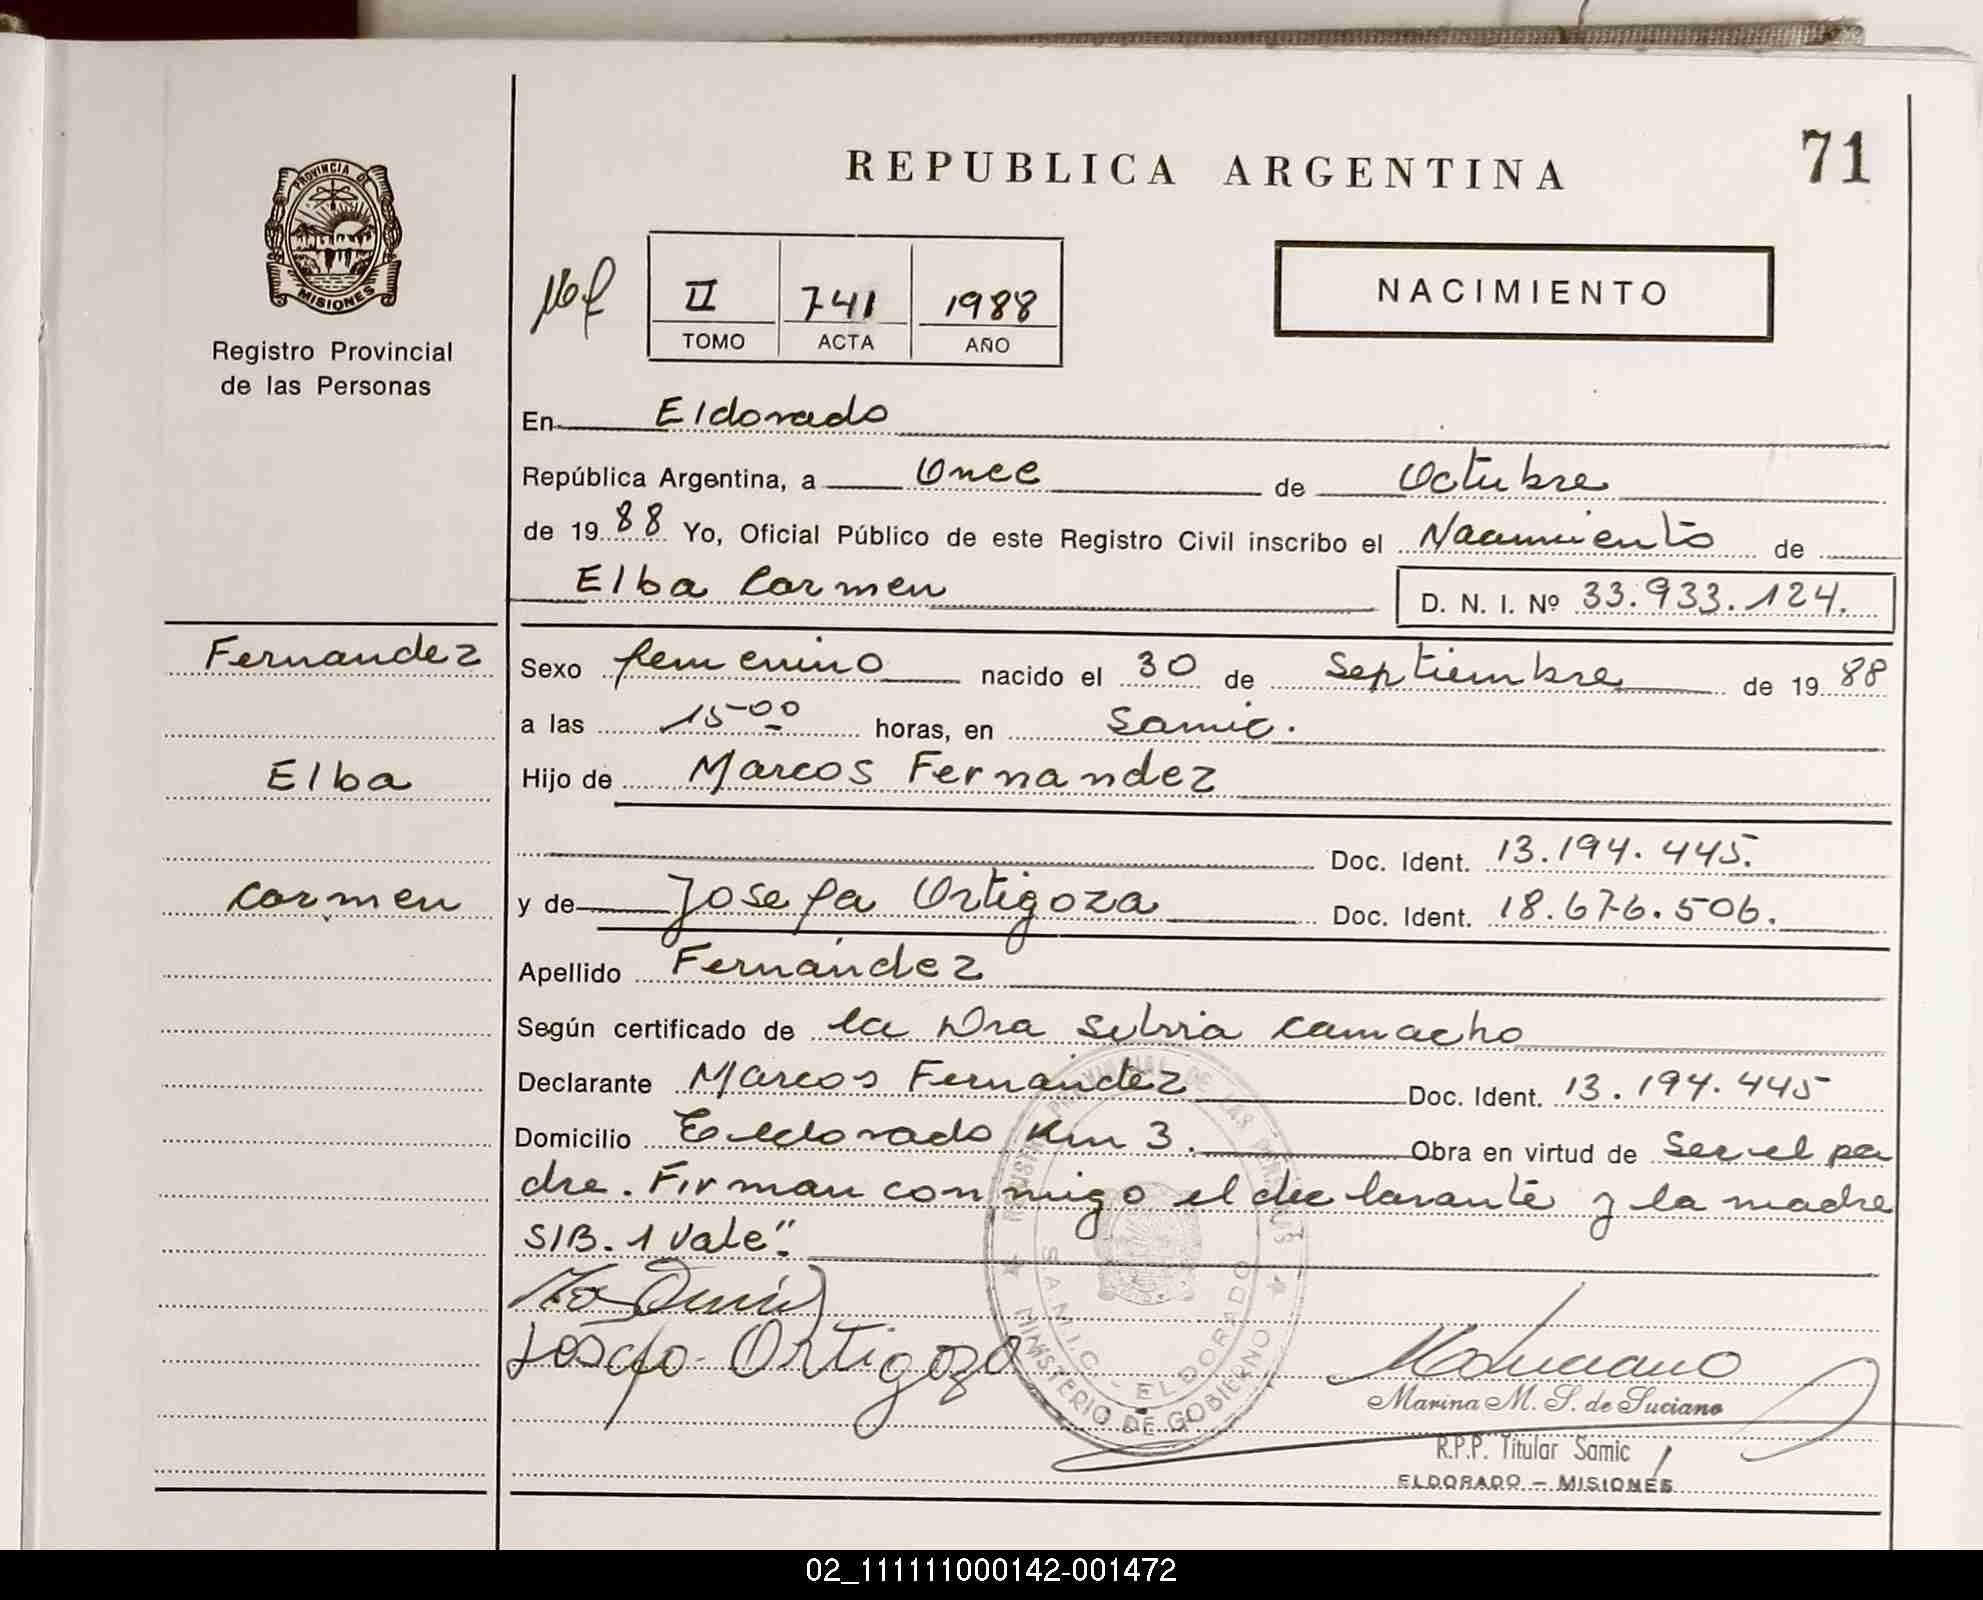 REPUBLICA ARGENTINA
71
PROVINCIA DE
MISIONES
Registro Provincial
de las Personas
II 741 1988
TOMO ACTA AÑO
NACIMIENTO
En Eldorado
República Argentina, a Once de Octubre
de 1988 Yo, Oficial Público de este Registro Civil inscribo el Nacimiento de
Elba Carmen D. N. I. Nº 33.933.124.
Fernandez
Elba
Carmen
Sexo femenino nacido el 30 de Septiembre de 1988
a las 15-00 horas, en Samic.
Hijo de Marcos Fernandez
Doc. Ident. 13.194.445.
y de Josefa Ortigoza Doc. Ident. 18.676.506.
Apellido Fernandez
Según certificado de la Dra Silvia Camacho
Declarante Marcos Fernandez Doc. Ident. 13.194.445
Domicilio Eldorado Km 3. Obra en virtud de Ser el pa
dre. Firman conmigo el declarante y la madre
S/B. 1 Vale".
Ortigoza
REGISTRO PROVINCIAL DE LAS PERSONAS
SAMIC - ELDORADO
MINISTERIO DE GOBIERNO
Marina M. S. de Luciano
R.P.P. Titular Samic
ELDORADO - MISIONES
02_111111000142-001472